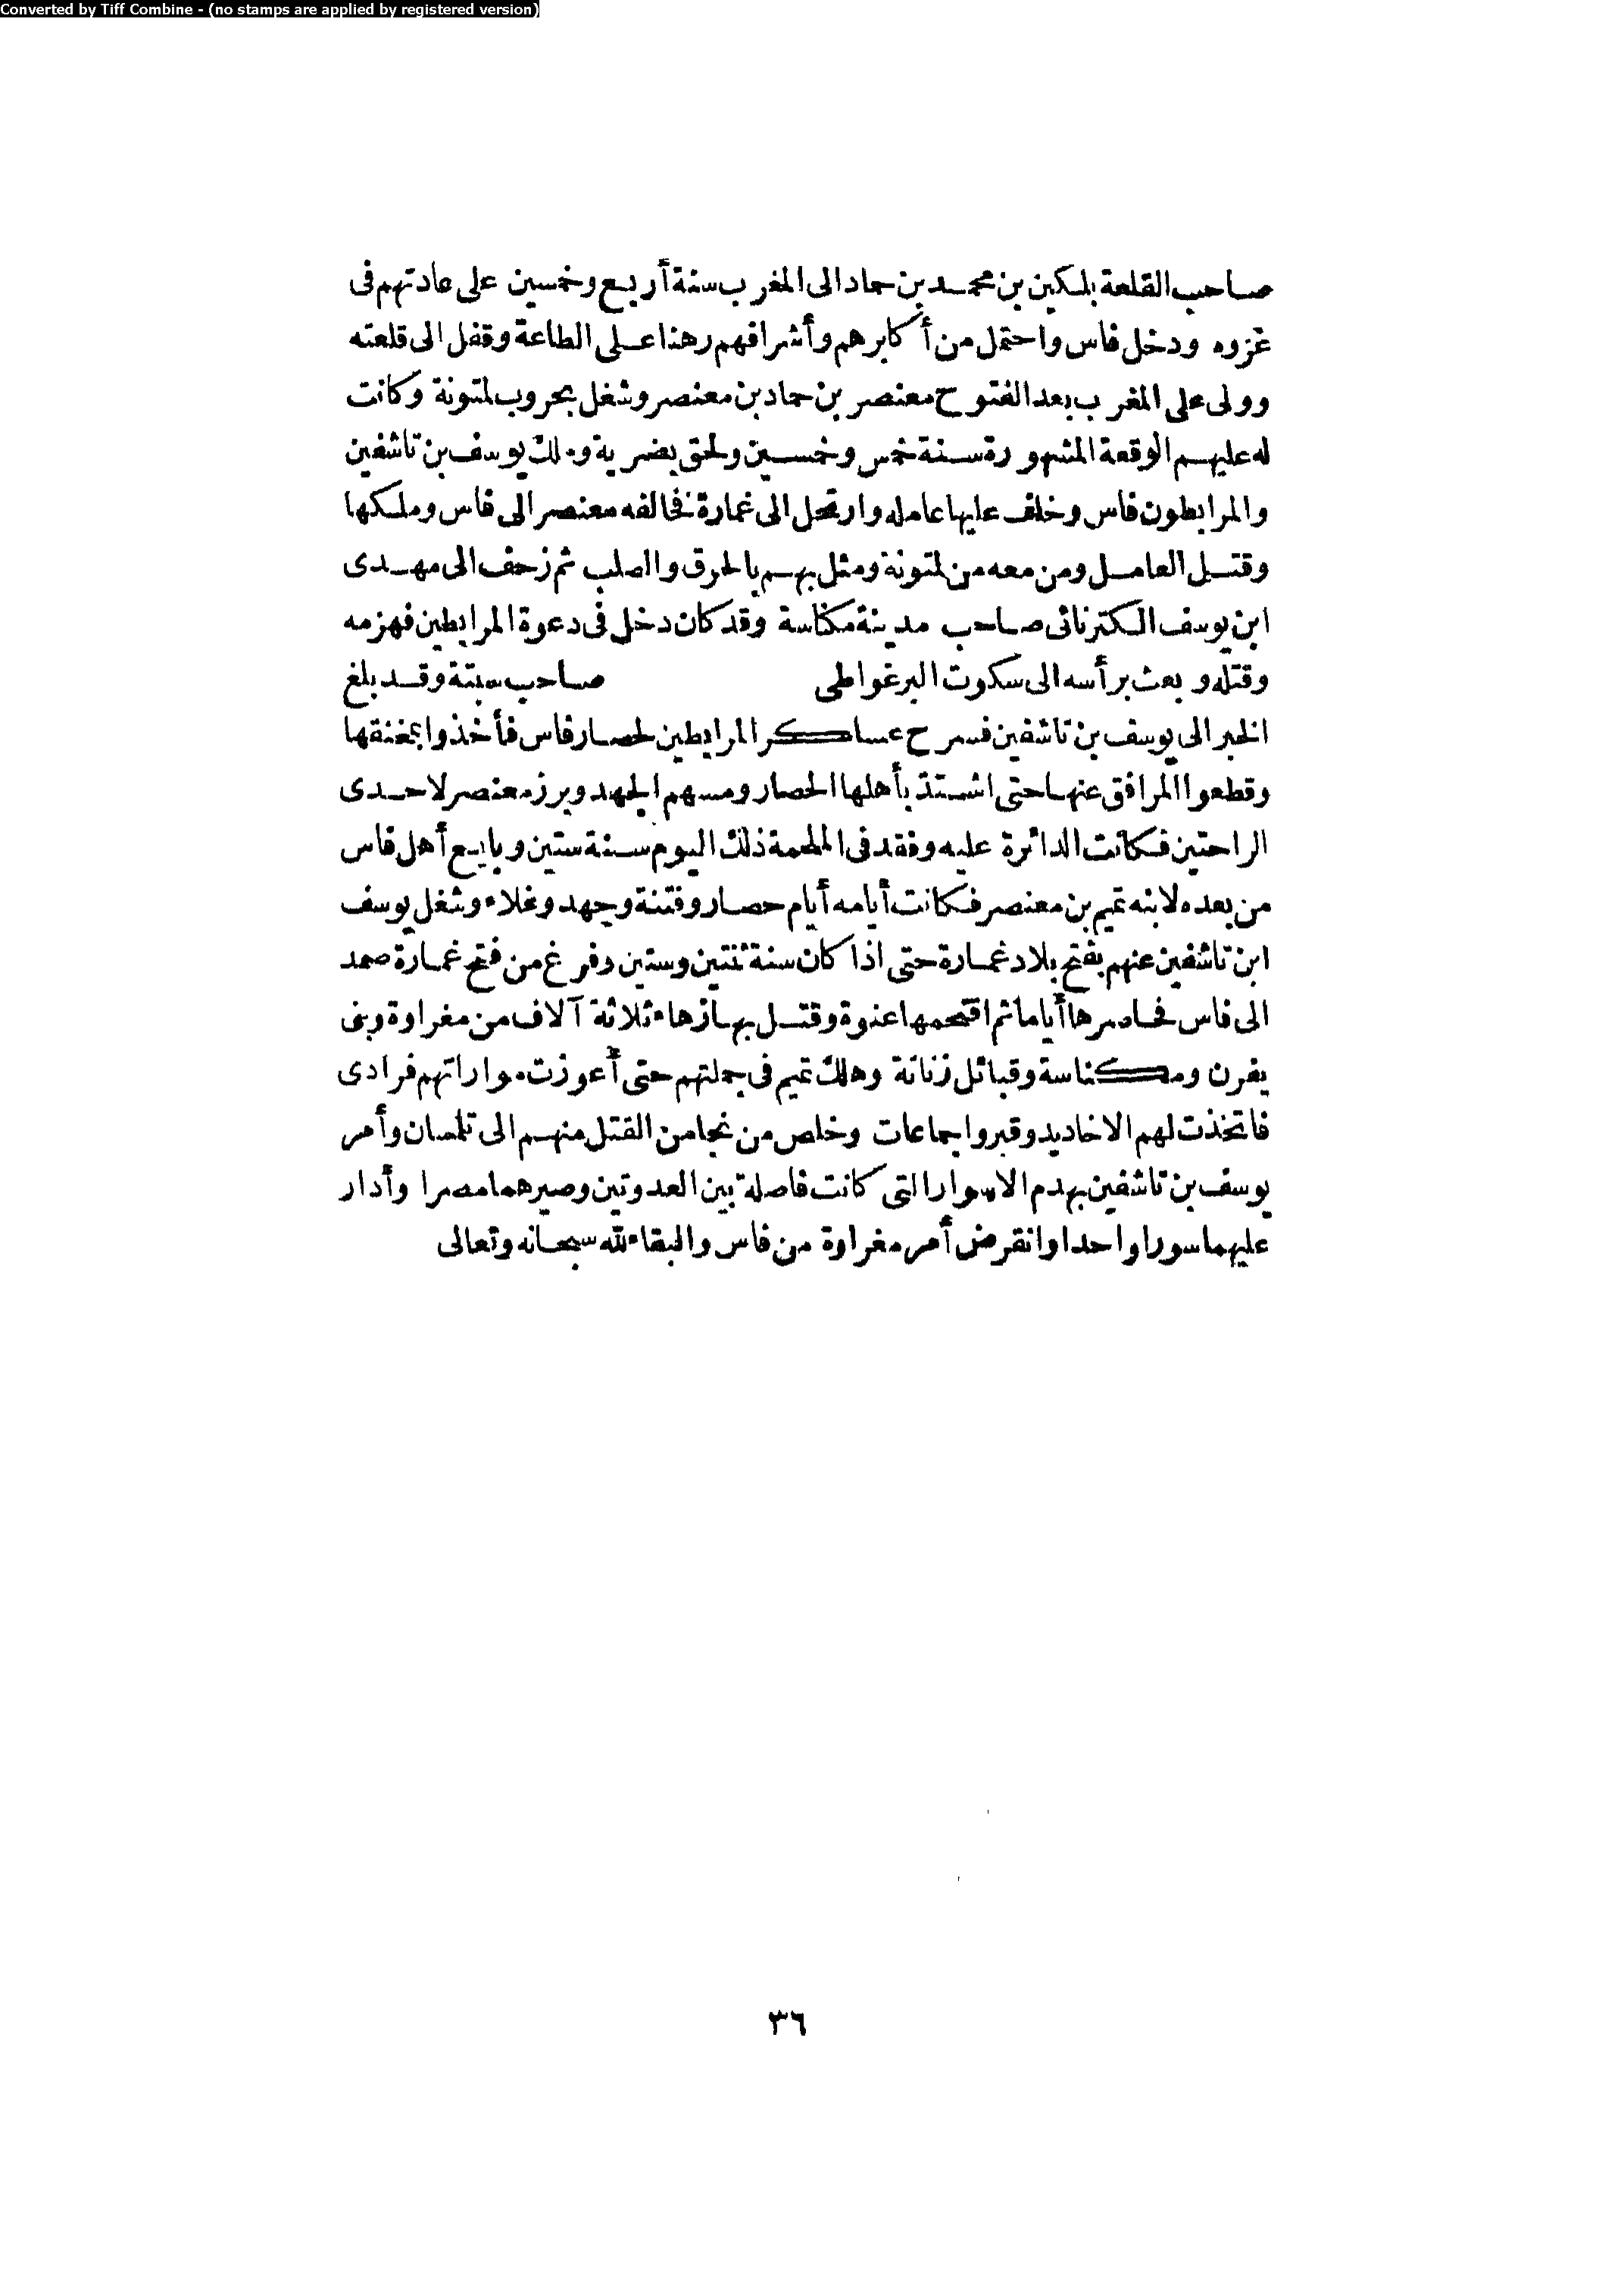 Converted by Tiff Combine - (no stamps are applied by registered version)
صاحب القلعة بلكين بن محمد بن حماد الى المغرب سنة أربع وخمسين على عادتهم فى
غزوه ودخل فاس واحتمل من أكابرهم وأشرافهم رهنا على الطاعة وقفل الى قلعته
وولى على المغرب بعد الفتوح معنصر بن حماد بن معنصر وشغل بحروب لمتونة وكانت
له عليهم الوقعة المشهورة سنة خمس وخمسين ولحق بضرية وملك يوسف بن تاشفين
والمرابطون فاس وخلف عليها عامله وارتحل الى غمارة فخالفه معنصر الى فاس وملكها
وقتل العامل ومن معه من لمتونة ومثل بهم بالحرق والصلب ثم زحف الى مهدى
ابن يوسف الكترنائى صاحب مدينة مكناسة وقد كان دخل فى دعوة المرابطين فهزمه
وقتله وبعث برأسه الى سكوت البرغواطى صاحب سبتة وقد بلغ
الخبر الى يوسف بن تاشفين فسرح عساكر المرابطين لحصار فاس فأخذوا بمخنقها
وقطعوا المرافق عنها حتى اشتد بأهلها الحصار ومسهم الجهد وبرز معنصر لاحدى
الراحتين فكانت الدائرة عليه وفقد فى الملحمة ذلك اليوم سنة ستين وبايع أهل فاس
من بعده لابنه تميم بن معنصر فكانت أيامه أيام حصار وفتنة وجهد وغلاء وشغل يوسف
ابن تاشفين عنهم بفتح بلاد غمارة حتى اذا كان سنة ثنتين وستين وفرغ من فتح غمارة صمد
الى فاس فحاصرها أياما ثم اقتحمها عنوة وقتل بها زهاء ثلاثة آلاف من مغراوة وبنى
يفرن ومكناسة وقبائل زناتة وهلك تميم فى جملتهم حتى أعوزت مواراتهم فرادى
فاتخذت لهم الاخاديد وقبروا جماعات وخلص من نجا من القتل منهم الى تلمسان وأمر
يوسف بن تاشفين بهدم الاسوار التى كانت فاصلة بين العدوتين وصيرهما مصرا وأدار
عليهما سورا واحدا وانقرض أمر مغراوة من فاس والبقاء لله سبحانه وتعالى
٣٦